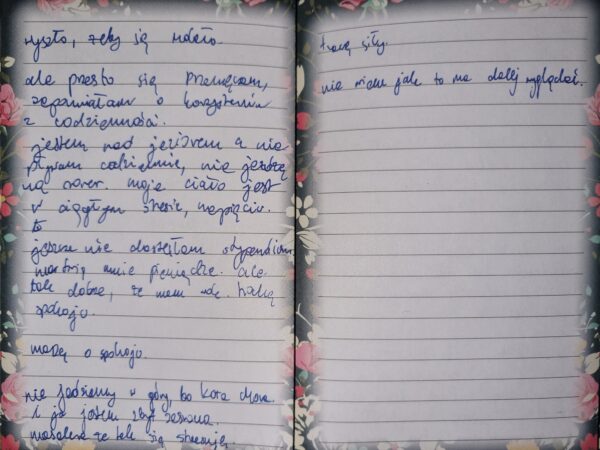 wyszło, żeby się udało.
ale prosto się przemęczam,
zapomniałam o korzystaniu
z codzienności.
jestem nad jeziorem a nie
pływam codziennie, nie jeżdżę
na rower. moje ciało jest
w ciągłym stresie, napięciu.
to
jeszcze nie dostałam stypendium
martwią mnie pieniądze. ale
tak dobrze, że mam
spokoju.
marzę o spokoju.
nie jedziemy w góry, bo Kora chora.
i ja jestem zbyt
że tak się stresuję
tracę siły.
nie wiem jak to ma dalej wyglądać.